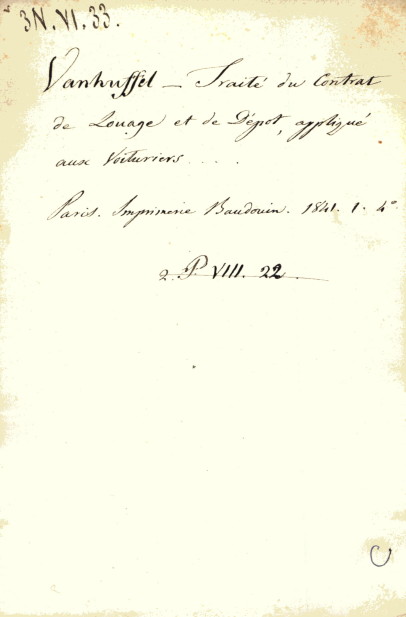 3N.VI.33.
Vanhuffel — Traité du Contrat
de Louage et de Dépot, appliqué
aux Voituriers....
Paris. Imprimerie Baudouin. 1841. 1. 4°
2. P. VIII. 22.
C